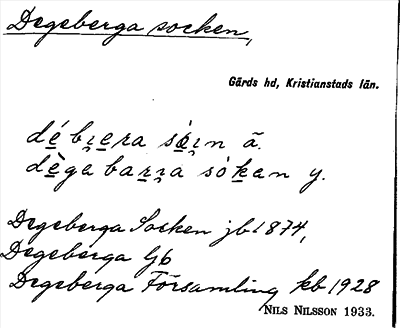 Degeberga socken,
Gärds hd, Kristianstads län.
dé bi̯era só̱i̯n ã.
dèga bar̯i̯a sók̯an y.
Degeberga Socken jb 1874,
Degeberga Gb
Degeberga Församling kb 1928
NILS NILSSON 1933.